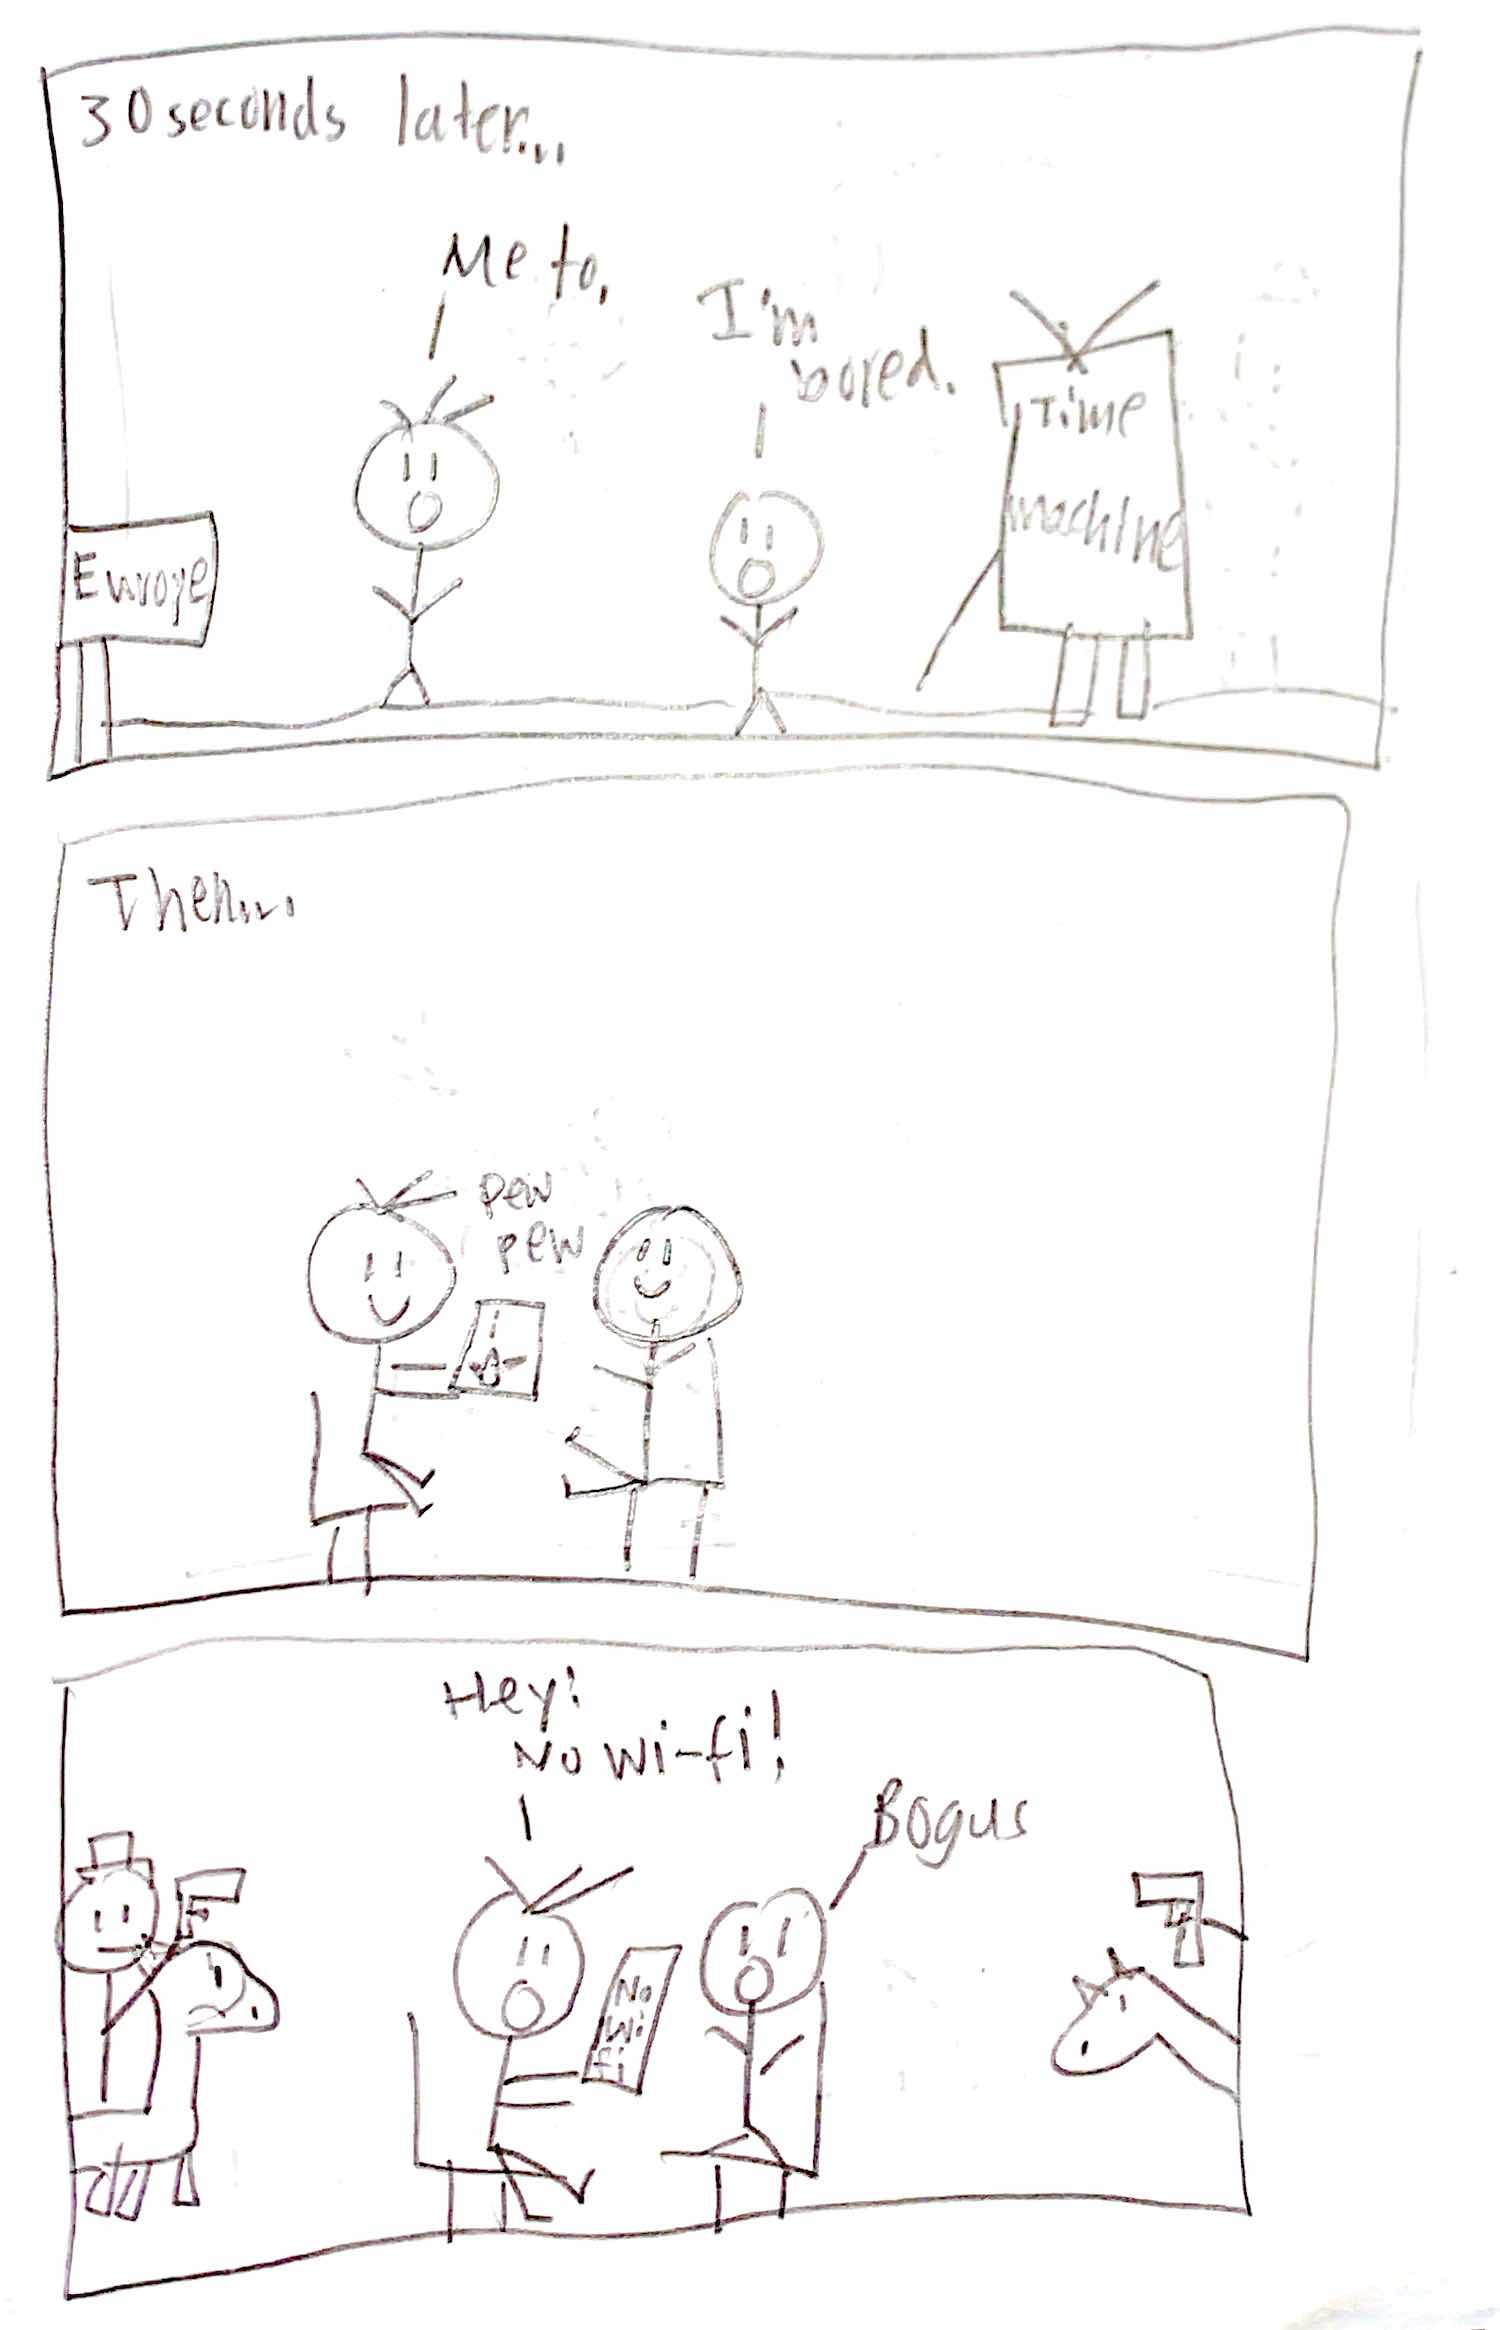 30 seconds later...
Me to.
I'm
bored.
Time
machine
Europe
Then...
pew
pew
Hey!
No wi-fi!
Bogus
No
Wi
fi